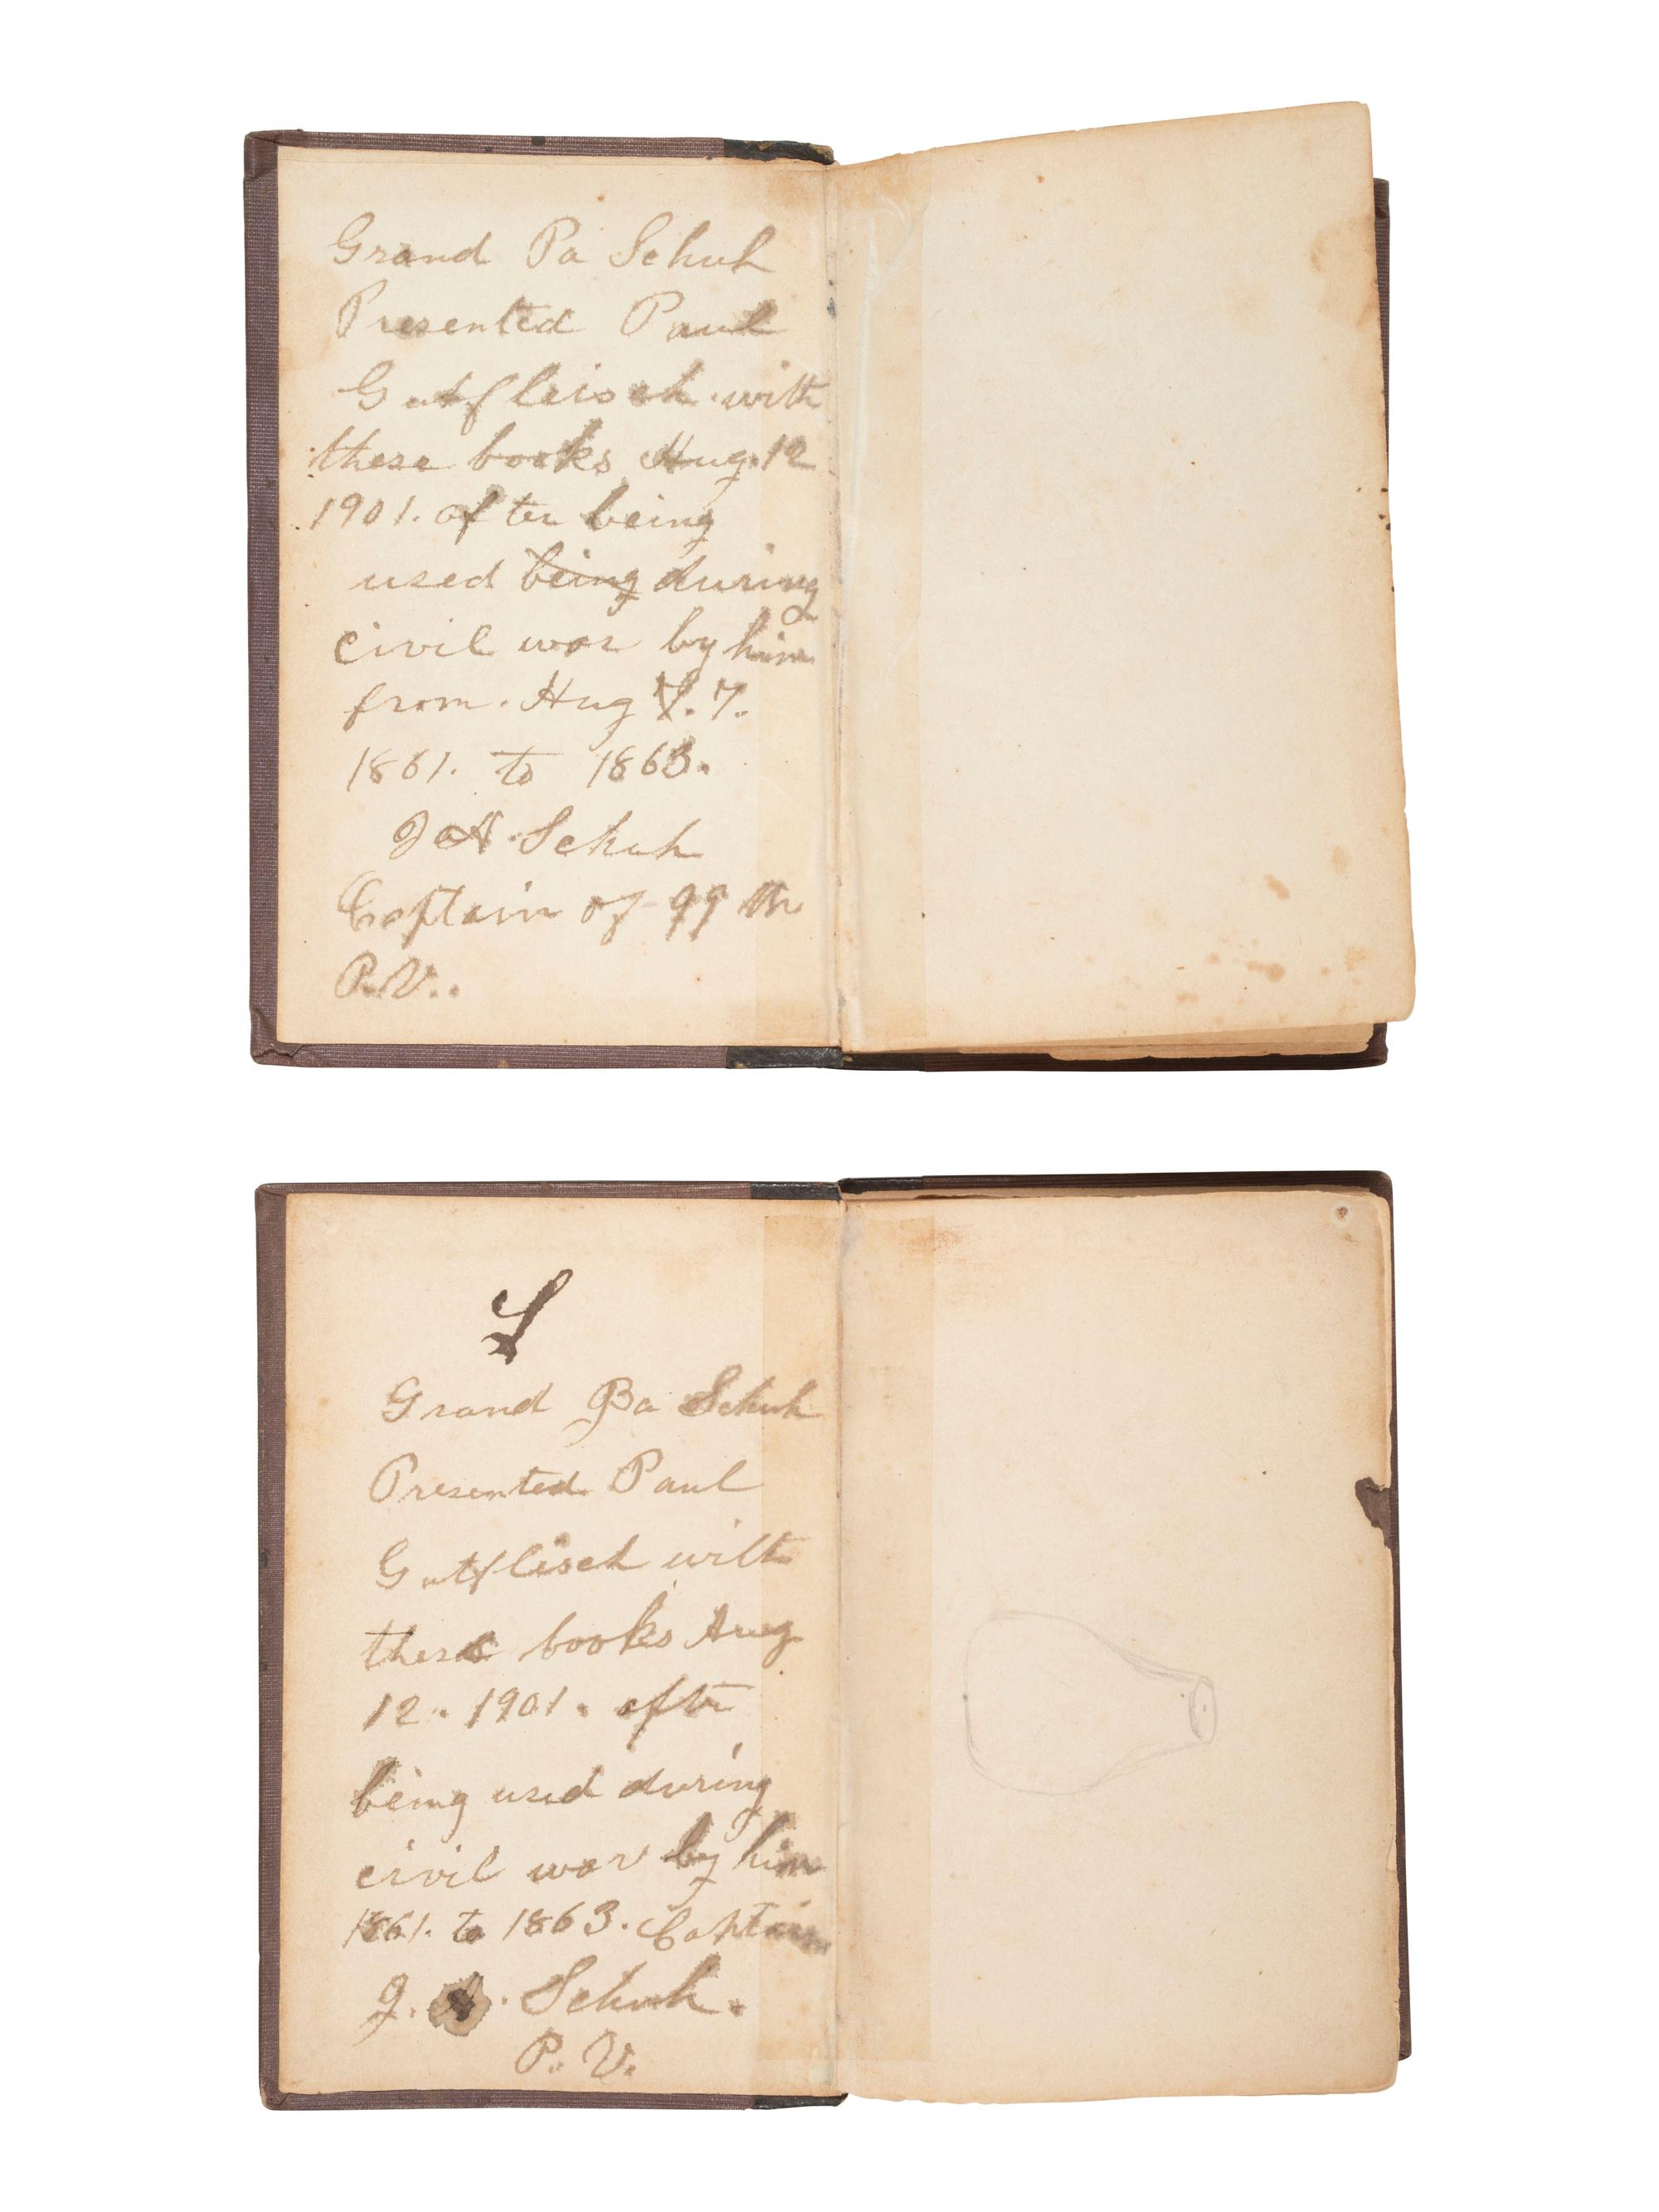 Grand Pa Schuh
Presented Paul
Gutfleisch with
these books Aug. 12
1901. after being
used being during
civil war by him
from. Aug 7. 7.
1861. to 1863.
J A. Schuh
Captain of 99 th
P.V..
S
Grand Pa Schuh
Presented Paul
Gutflisch with
these books Aug
12. 1901. after
being used during
civil war by him
1861. to 1863. Captain
J. A. Schuh.
P. V.